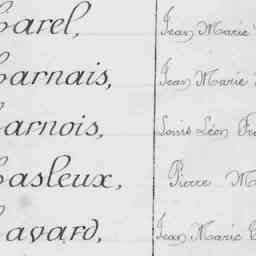 arel, Jean Marie
arnais, Jean Marie
arnois, Louis Léon Fr
asleux, Pierre M
avard, Jean Marie